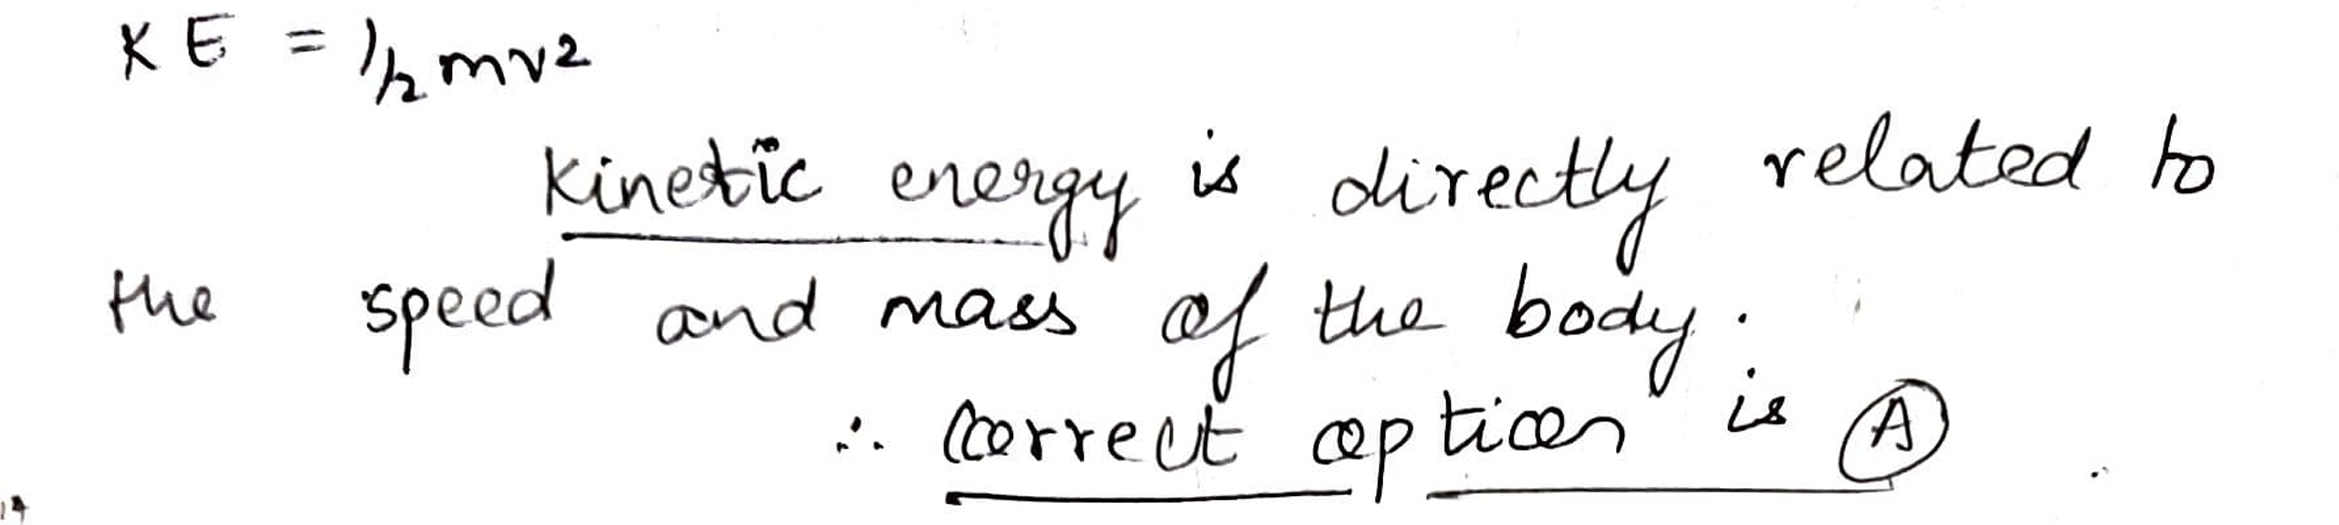 KE = 1/2 mv2
Kinetic energy is directly related to
the speed and mass of the body.
∴ Correct option is A
14